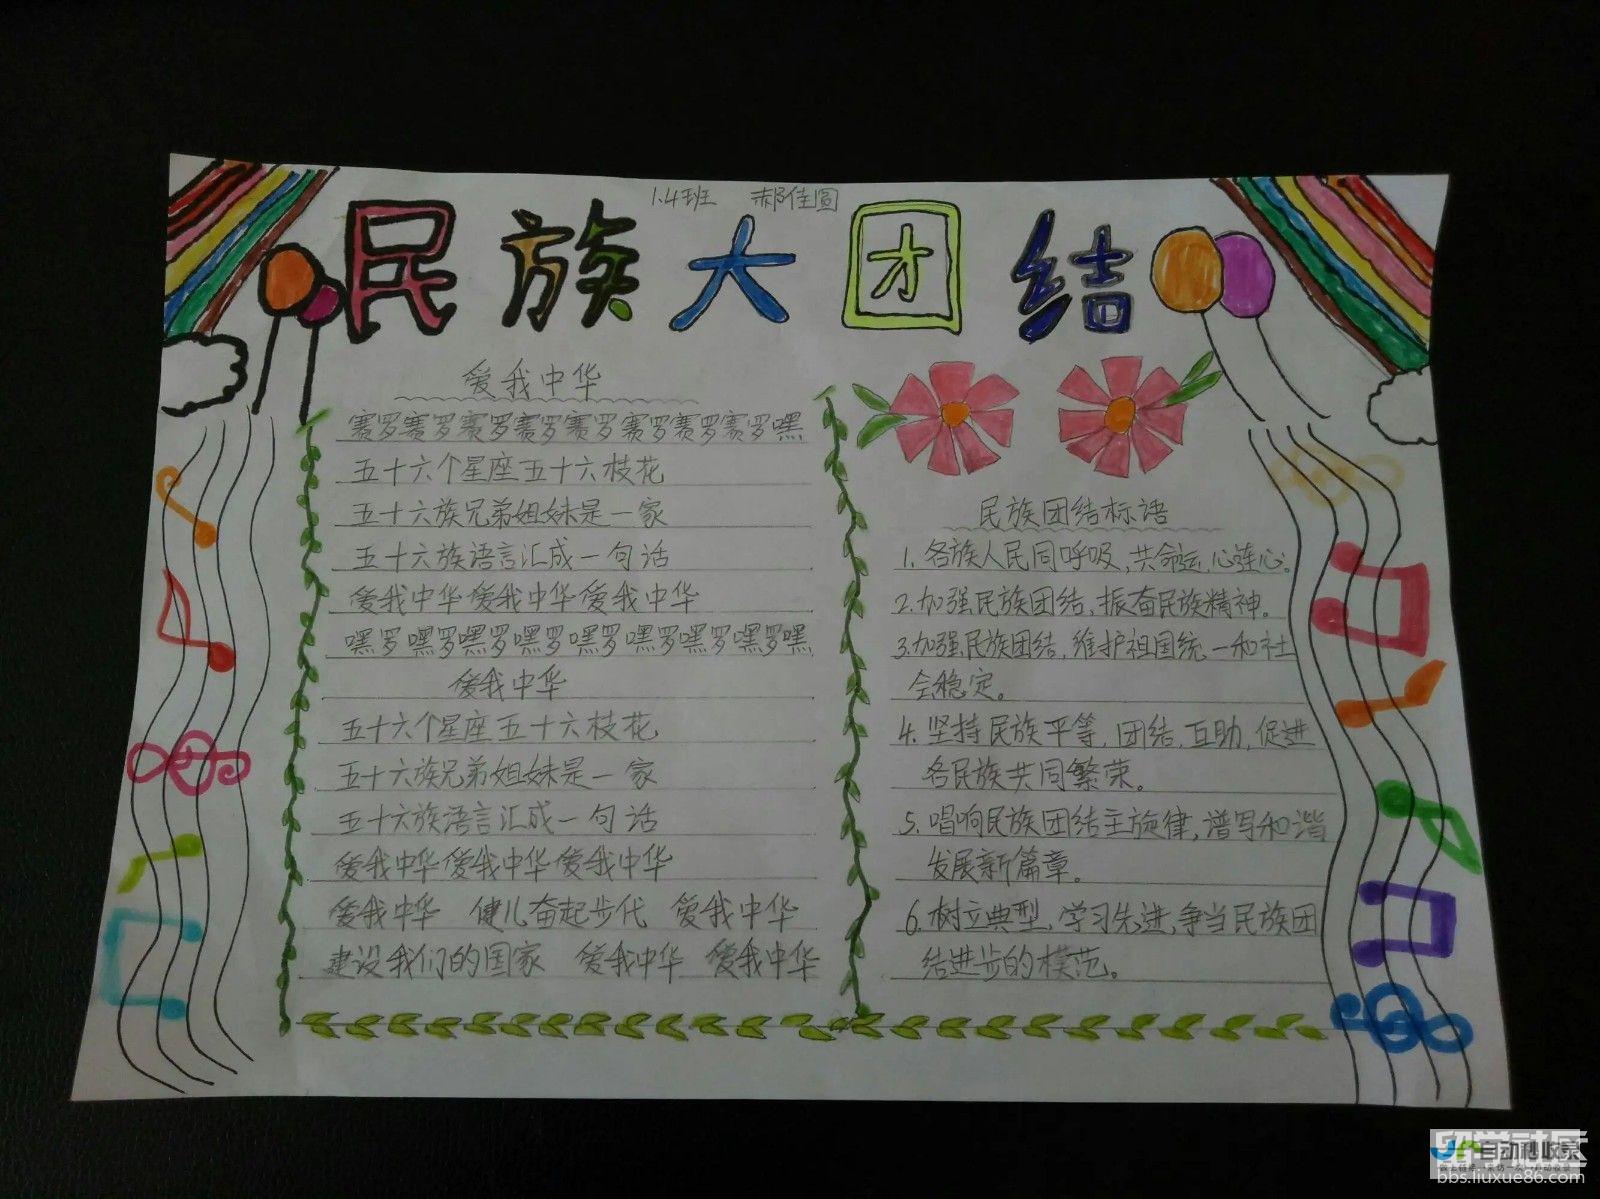 1.4班 郝佳圆
民族大团结
爱我中华
赛罗赛罗赛罗赛罗赛罗赛罗赛罗赛罗嘿
五十六个星座五十六枝花
五十六族兄弟姐妹是一家
五十六族语言汇成一句话
爱我中华爱我中华爱我中华
嘿罗嘿罗嘿罗嘿罗嘿罗嘿罗嘿罗嘿罗嘿
爱我中华
五十六个星座五十六枝花
五十六族兄弟姐妹是一家
五十六族语言汇成一句话
爱我中华爱我中华爱我中华
爱我中华 健儿奋起步代 爱我中华
建设我们的国家 爱我中华 爱我中华
民族团结标语
1. 各族人民同呼吸,共命运,心连心。
2.加强民族团结,振奋民族精神。
3.加强民族团结,维护祖国统一和社
会稳定。
4. 坚持民族平等,团结,互助,促进
各民族共同繁荣。
5. 唱响民族团结主旋律,谱写和谐
发展新篇章。
6. 树立典型,学习先进,争当民族团
结进步的模范。
自动秒收录
bbs.liuxue86.com